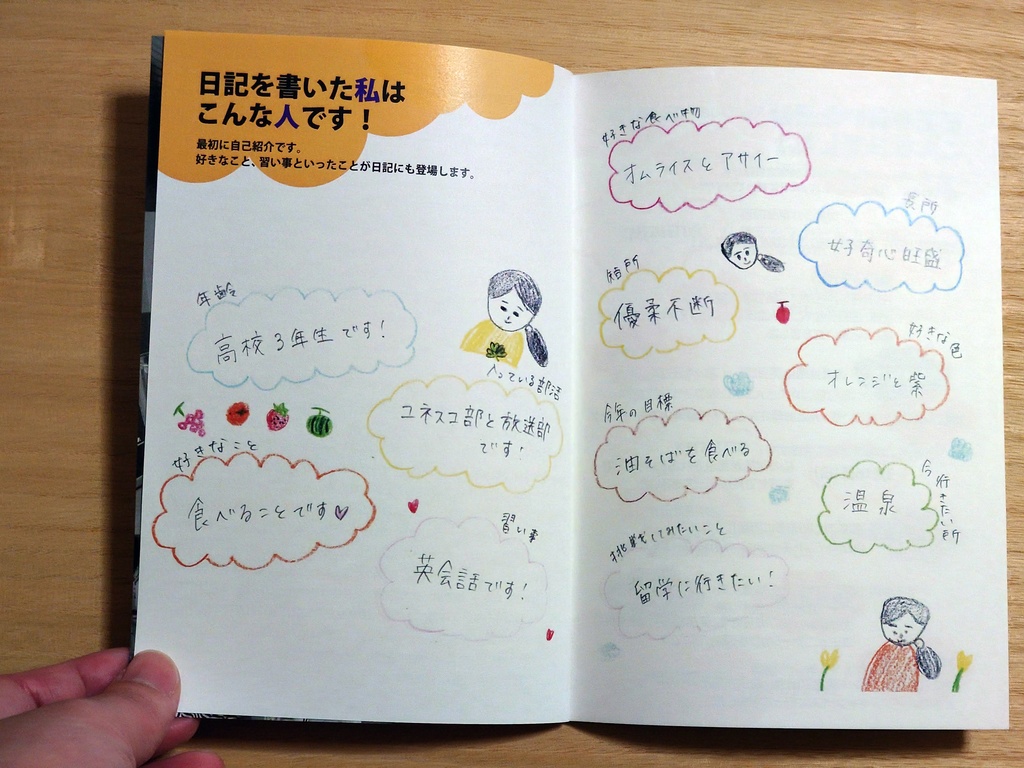 日記を書いた私は
こんな人です！
最初に自己紹介です。
好きなこと、習い事といったことが日記にも登場します。
年齢
高校3年生です!
入っている部活
ユネスコ部と放送部
です!
好きなこと
食べることです♡
習い事
英会話です!
好きな食べ物
オムライスとアサイー
長所
好奇心旺盛
短所
優柔不断
好きな色
オレンジと紫
今年の目標
油そばを食べる
今行きたい所
温泉
挑戦してみたいこと
留学に行きたい!